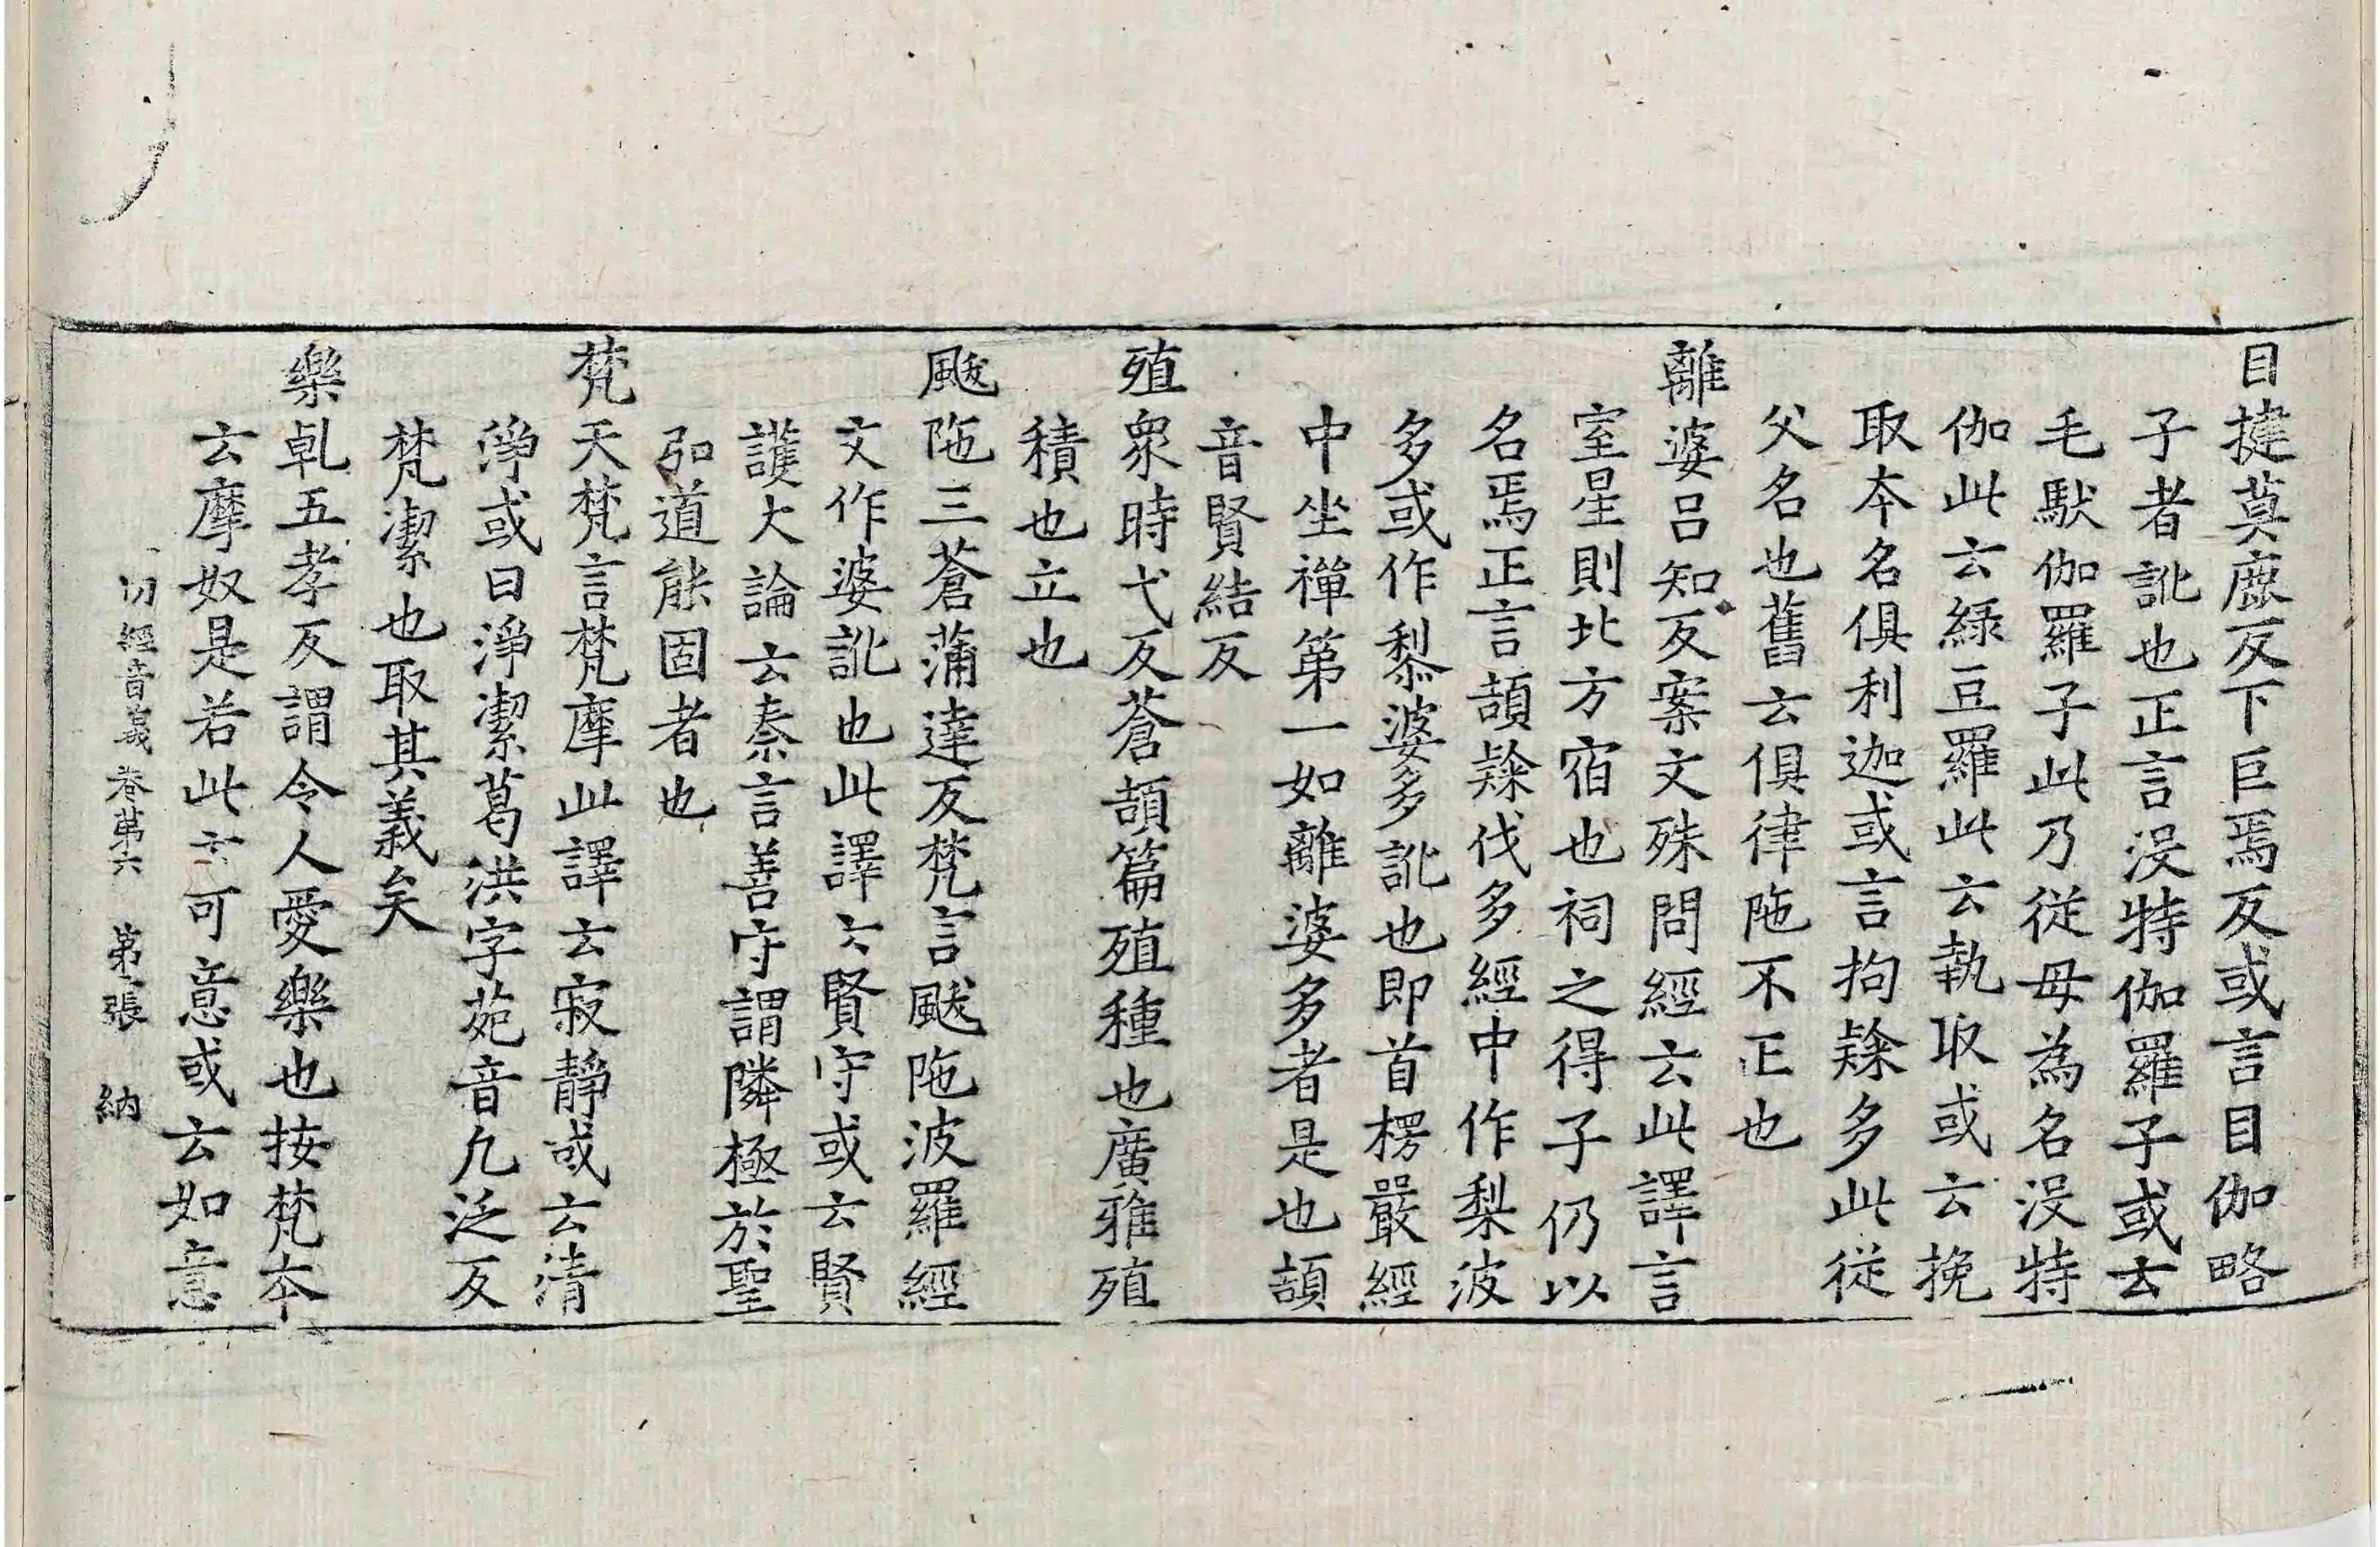 目揵莫鹿反下巨焉反或言目伽略
子者訛也正言没特伽羅子或云
毛馱伽羅子此乃從母為名没特
伽此云綠豆羅此云執取或云挽
取本名俱利迦或言拘隸多此從
父名也舊云俱律陁不正也
離婆吕知反案文殊問經云此譯言
室星則北方宿也祠之得子仍以
名焉正言頡隸伐多經中作梨波
多或作黎婆多訛也即首楞嚴經
中坐禪第一如離婆多者是也頡
音賢結反
殖衆時弋反蒼頡篇殖種也廣雅殖
積也立也
颰陁三蒼蒲達反梵言颰陁波羅經
文作婆訛也此譯云賢守或云賢
護大論云柰言善守謂隣極於聖
弘道能固者也
梵天梵言梵摩此譯云寂靜或云清
淨或曰淨潔葛洪字苑音凢泛反
梵潔也取其義矣
樂乹五孝反謂令人愛樂也按梵本
云摩奴是若此云可意或云如意
切經音義卷第六 第 張 納